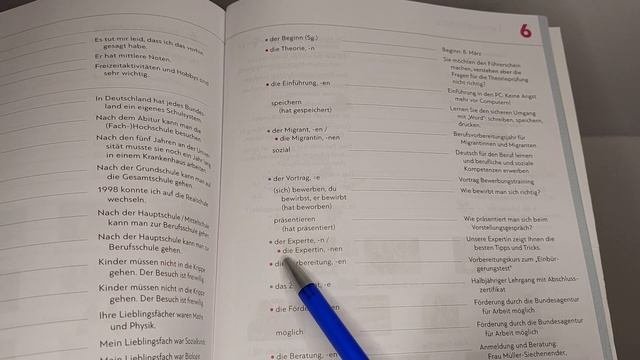 Es tut mir leid, dass ich das vorhin
gesagt habe.
Er hat mittlere Noten.
Freizeitaktivitäten und Hobbys sind
sehr wichtig.
In Deutschland hat jedes Bundes-
land ein eigenes Schulsystem.
Nach dem Abitur kann man die
(Fach-)Hochschule besuchen.
Nach den fünf Jahren an der Univer
sität musste sie noch ein Jahr lang
in einem Krankenhaus arbeiten
Nach der Grundschule kann man auf
die Gesamtschule gehen.
1998 konnte ich auf die Realschule
wechseln.
Nach der Hauptschule / Mittelschule
kann man zur Berufsschule gehen.
Nach der Hauptschule kann man zur
Berufsschule gehen.
Kinder müssen nicht in die Krippe
gehen. Der Besuch ist freiwillig
Kinder müssen nicht in die Krippe
gehen. Der Besuch ist freiwillig
Ihre Lieblingsfächer waren Mathe
und Physik.
Mein Lieblingsfach war Sozialkunde.
Mein Lieblingsfach war Biologie
6
• der Beginn (Sg.)
Beginn: 8. März
• die Theorie, -n
Sie möchten den Führerschein
machen, verstehen aber die
Fragen für die Theorieprüfung
nicht richtig?
• die Einführung, -en
Einführung in den PC: Keine Angst
mehr vor Computern!
speichern
(hat gespeichert)
Lernen Sie den sicheren Umgang
mit „Word“: schreiben, speichern,
drucken.
• der Migrant, -en /
• die Migrantin, -nen
Berufsvorbereitungsjahr für
Migrantinnen und Migranten
sozial
Deutsch für den Beruf lernen
und berufliche und soziale
Kompetenzen erwerben
• der Vortrag, -e
Vortrag Bewerbungstraining
(sich) bewerben, du
bewirbst, er bewirbt
(hat beworben)
Wie bewirbt man sich richtig?
präsentieren
(hat präsentiert)
Wie präsentiert man sich beim
Vorstellungsgespräch?
• der Experte, -n /
• die Expertin, -nen
Unsere Expertin zeigt Ihnen die
besten Tipps und Tricks.
• die Vorbereitung, -en
Vorbereitungskurs zum „Einbür-
gerungstest“
• das Z t, -e
Halbjähriger Lehrgang mit Abschluss-
zertifikat
• die Förde en
Förderung durch die Bundesagentur
für Arbeit möglich
möglich
Förderung durch die Bundesagentur
für Arbeit möglich
• die Beratung, -en
Anmeldung und Beratung:
Frau Müller-Siechenender,